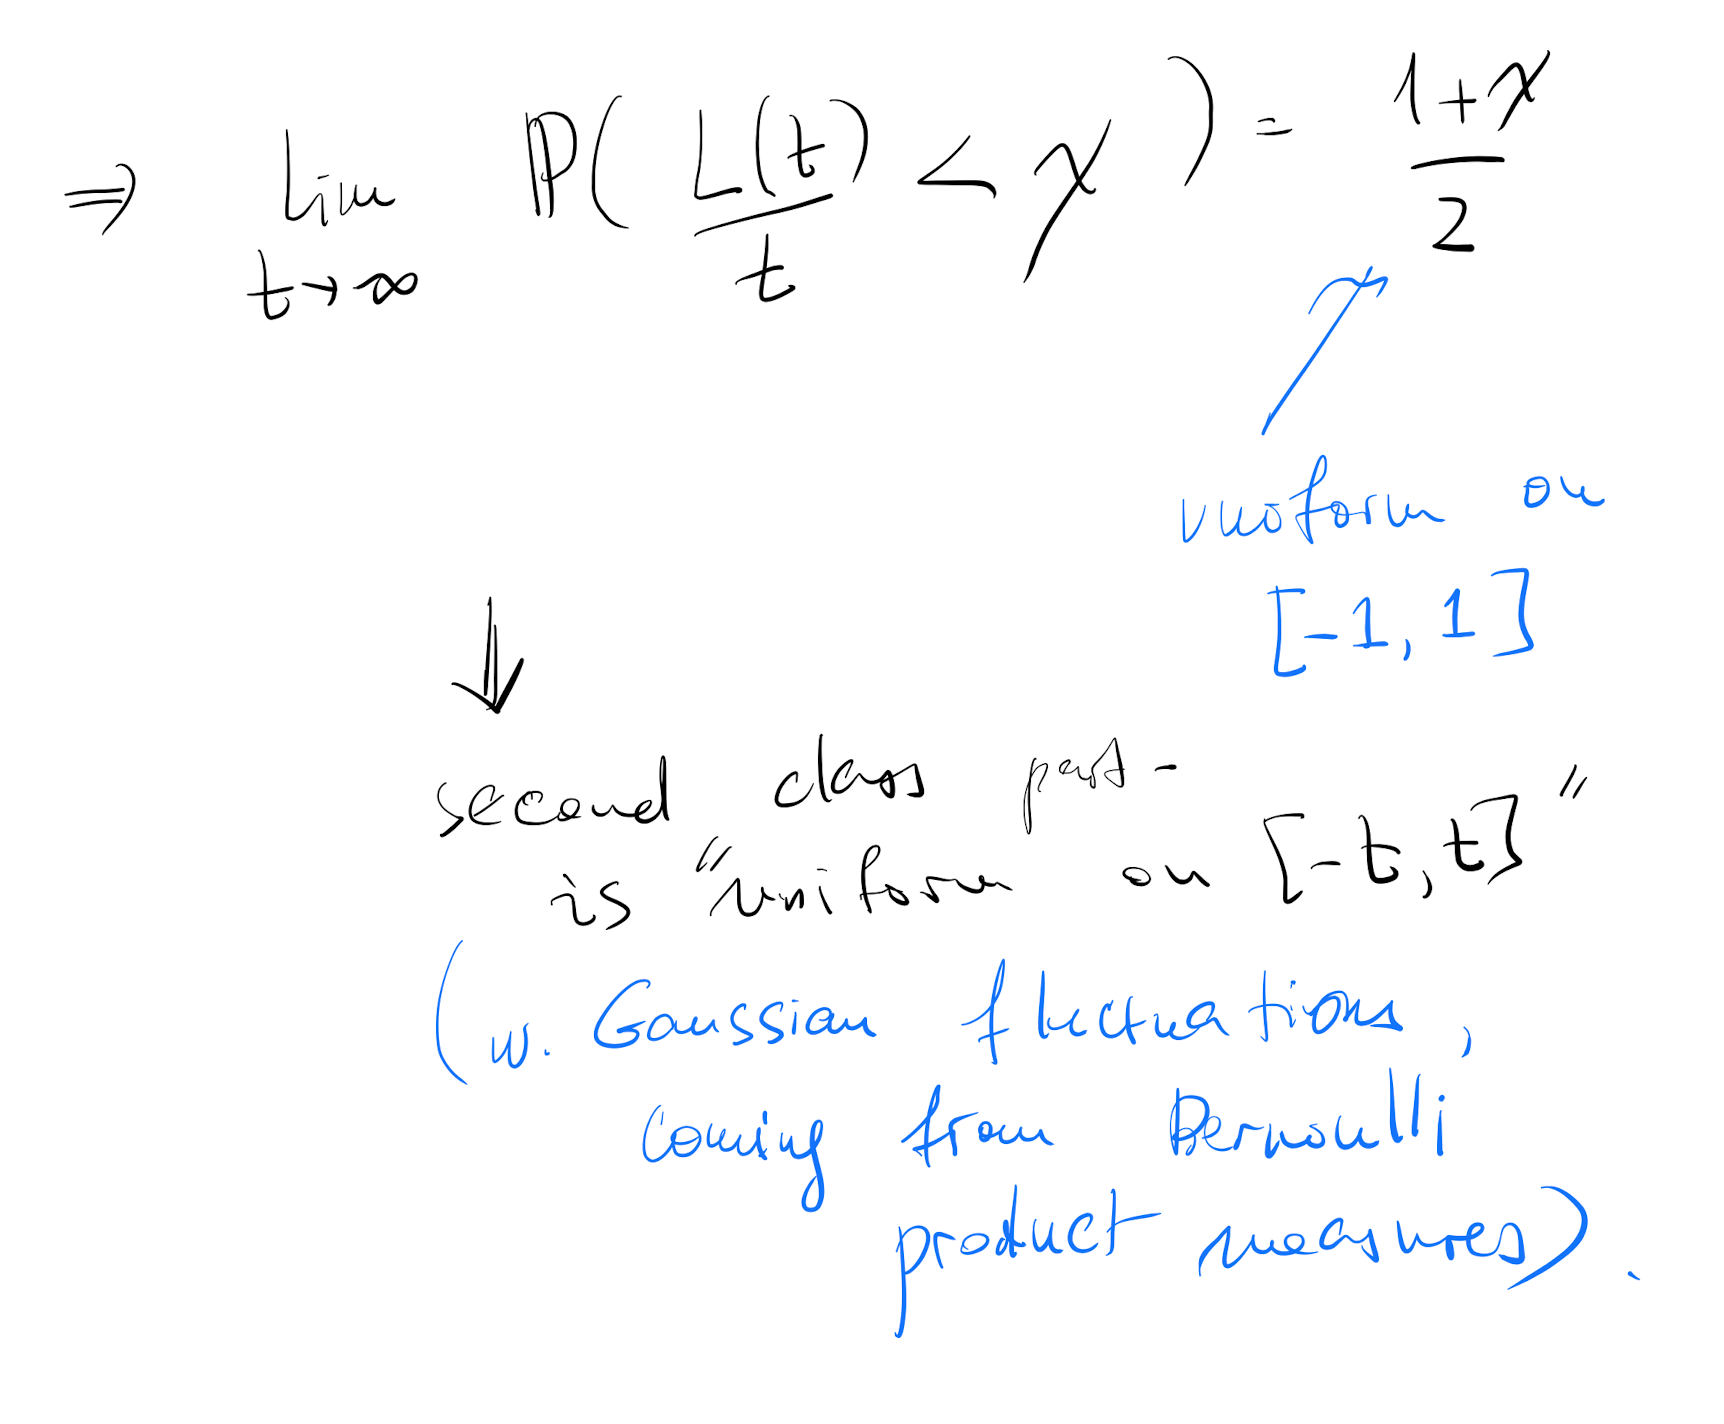 ⇒ lim_{t→∞} ℙ( L(t)/t < χ ) = (1+χ)/2
uniform on
[-1, 1]
⇓
second class part-
is "uniform on [-t, t]"
(w. Gaussian fluctuations,
coming from Bernoulli
product measures).